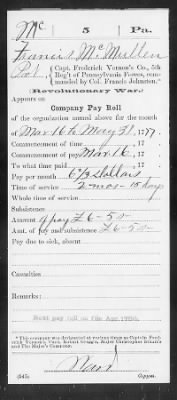 Mc 5 Pa.
Francis McMullen
Pvt., Capt. Frederick Vernon's Co., 5th
Reg't of Pennsylvania Forces, com-
manded by Col. Francis Johnston.*
(Revolutionary War.)
Appears on
Company Pay Roll
of the organization named above for the month
of Mar 16 to May 31, 1777.
Commencement of time, 17 .
Commencement of pay Mar 16, 17 .
To what time paid, 17 .
Pay per month 6 2/3 dollars
Time of service 2 mos-15 days
Whole time of service
Subsistence
Amount of pay £6-5-0
Amt. of pay and subsistence £6-5-0
Pay due to sick, absent
Casualties
Remarks:
*This company was designated at various times as Captain Fred-
The Major's Company.
Ward
(545) Copyist.